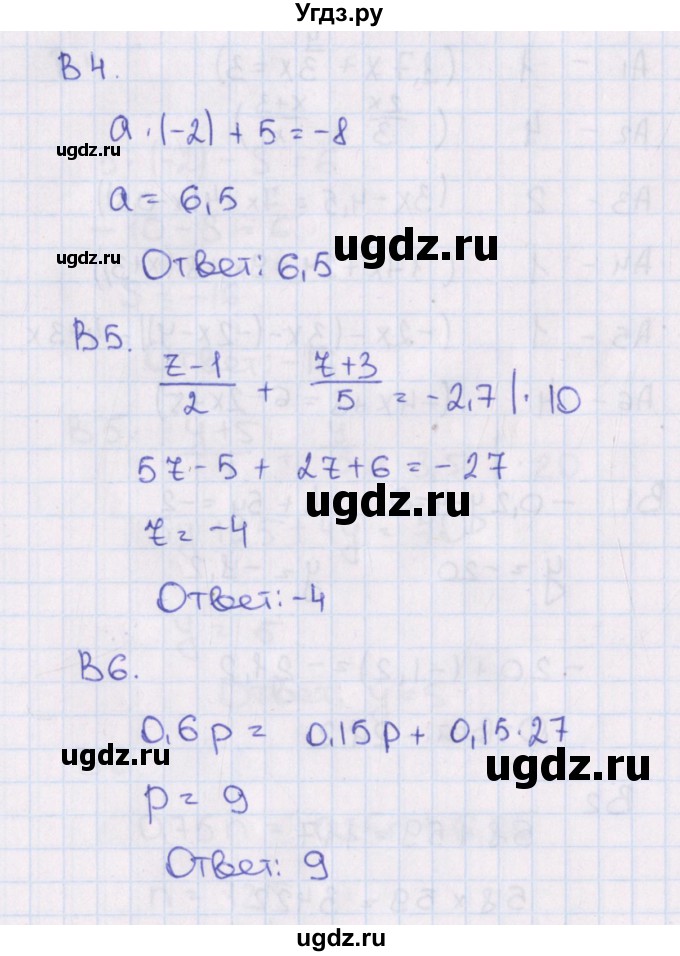 Угдз.ру
В 4.
a · (-2) + 5 = -8
ugdz.ru
a = 6,5
ugdz.ru
ugdz.ru
Ответ: 6,5
В5.
z-1/2 + z+3/5 = -2,7 |· 10
5z - 5 + 2z + 6 = -27
ugdz.ru
ugdz.ru
z = -4
Ответ: -4
В6.
0,6p = 0,15p + 0,15·27
ugdz.ru
ugdz.ru
p = 9
ugdz.ru
Ответ: 9
ugdz.ru